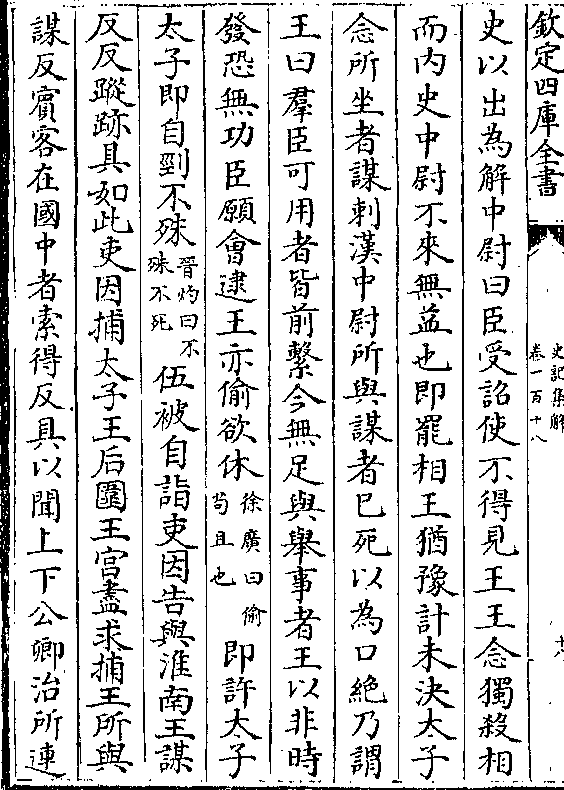 欽定四庫全書
史記集解
卷一百十八
史以出為解中尉曰臣受詔使不得見王王念獨殺相
而内史中尉不來無益也即罷相王猶豫計未決太子
念所坐者謀刺漢中尉所與謀者已死以為口絶乃謂
王曰羣臣可用者皆前繫今無足與舉事者王以非時
發恐無功臣願會逮王亦偷欲休徐廣曰偷苟且也即許太子
太子即自剄不殊晉灼曰不殊不死伍被自詣吏因告與淮南王謀
反反蹤跡具如此吏因捕太子王后圍王宫盡求捕王所與
謀反賓客在國中者索得反具以聞上下公卿治所連